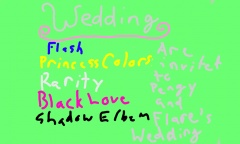 Wedding
Flash
PrincessColors
Rarity
BlackLove
Shadow Elbem
Are
invitet
to
Pengy
and
Flare's
Wedding